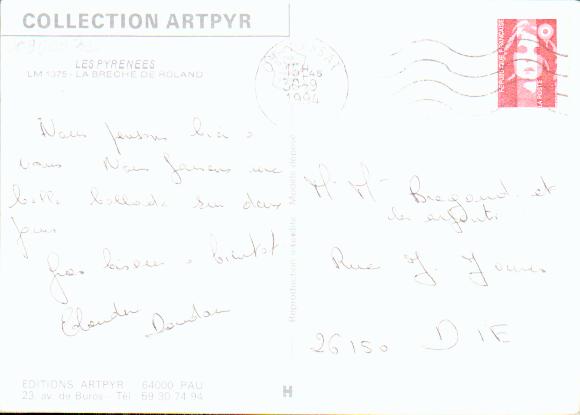 COLLECTION ARTPYR
LES PYRENEES
LM 1375 - LA BRECHE DE ROLAND
15H45
30-9
1994
REPUBLIQUE FRANCAISE
LA POSTE
Nous pensons bien à
vous. Nous faisons une
belle ballade sur deux
jours
Gros bisous à bientôt
M. Mme et
les enfants
Rue J.
26150 DIE
Reproduction interdite Modèle déposé
EDITIONS ARTPYR 64000 PAU
23, av. de Buros - Tél 59 30 74 94